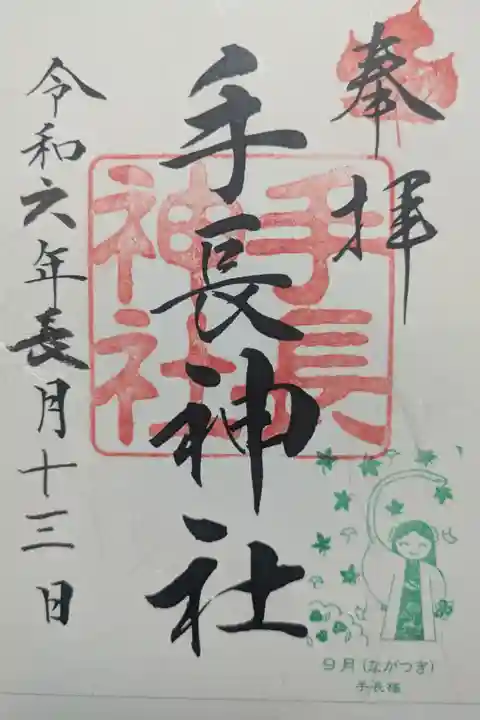 奉拝
手長神社
手長
神社
令和六年長月十三日
9月(ながつき)
手長様